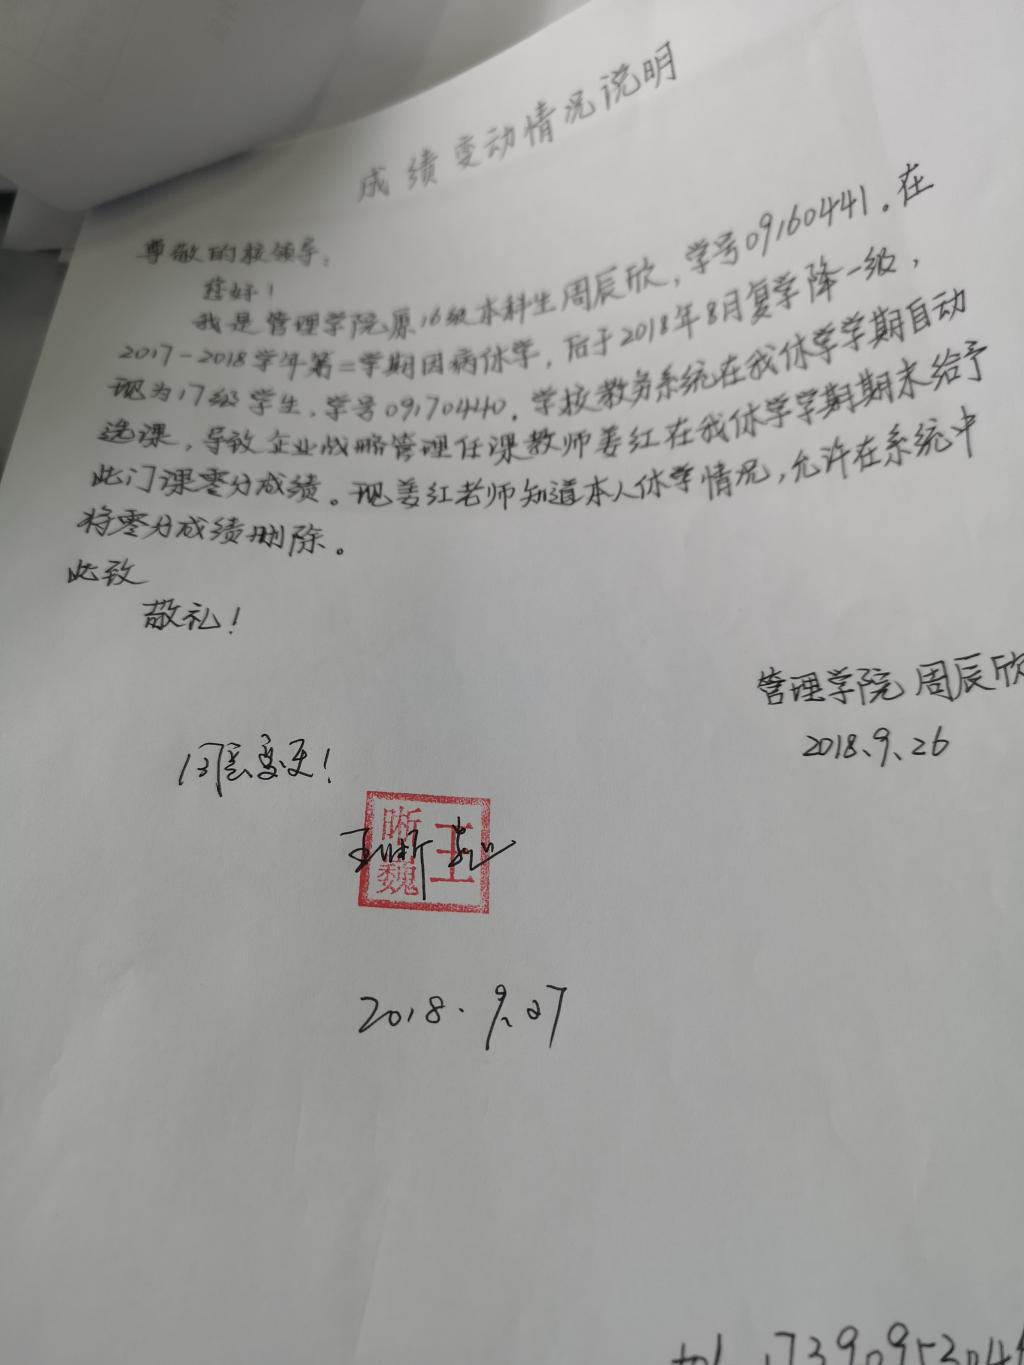 成绩变动情况说明
尊敬的校领导：
您好！
我是管理学院原16级本科生周辰欣，学号09160441。在
2017-2018学年第二学期因病休学，后于2018年8月复学降一级，
现为17级学生，学号09170440。学校教务系统在我休学学期自动
选课，导致企业战略管理任课教师姜红在我休学学期期末给予
此门课零分成绩。现姜红老师知道本人休学情况，允许在系统中
将零分成绩删除。
此致
敬礼！
管理学院 周辰欣
2018.9.26
同意变更！
王晰巍
2018.9.27
tel